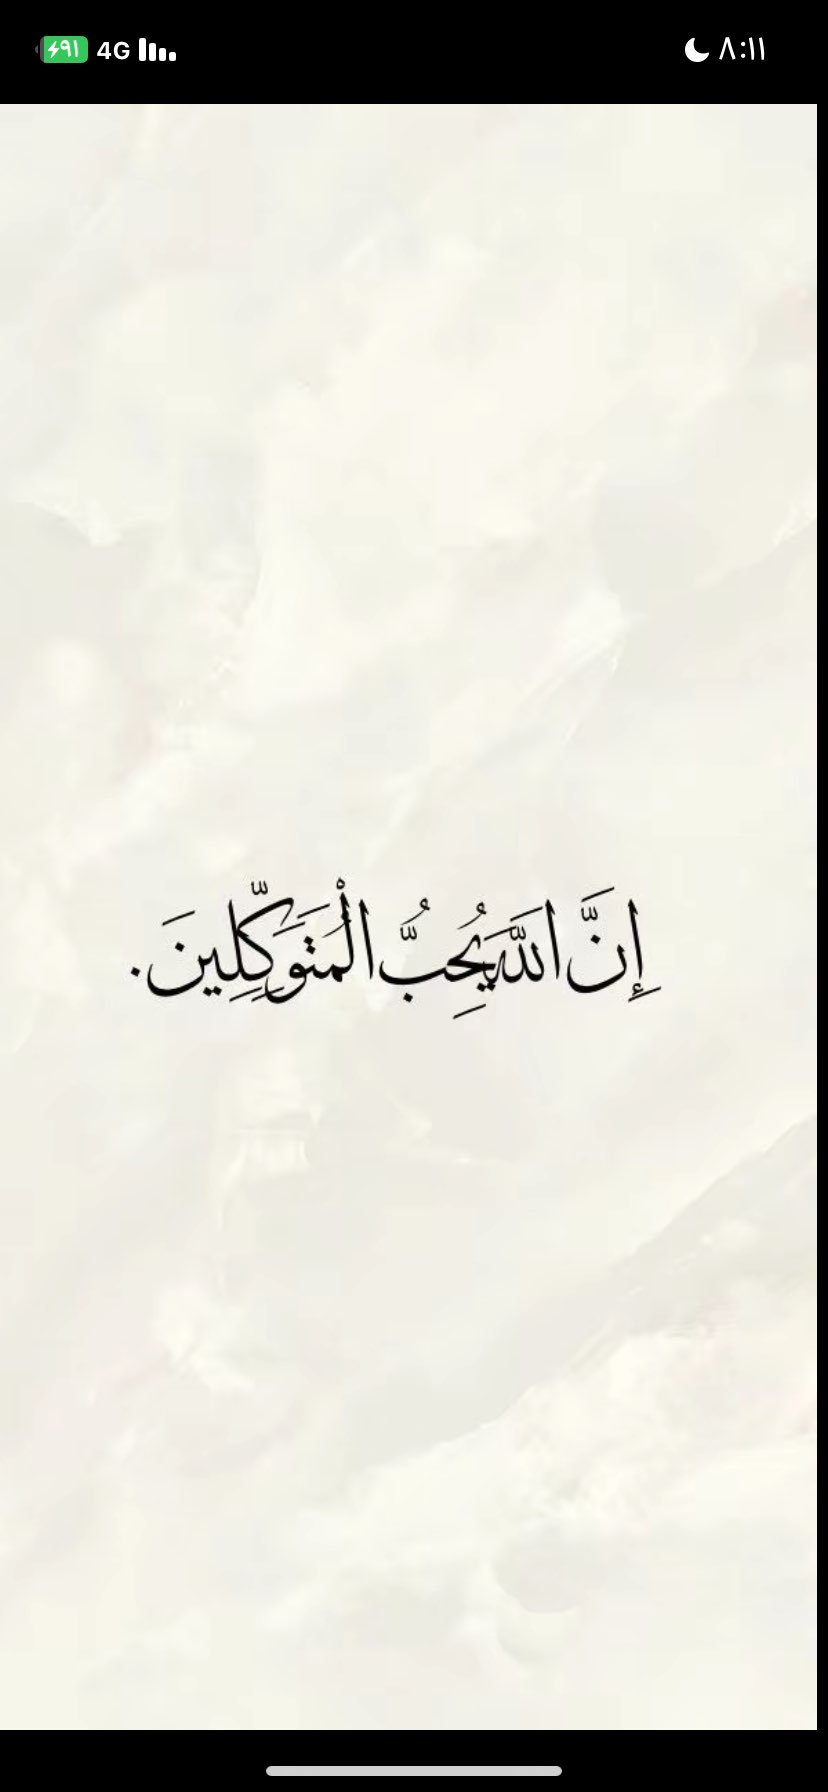 ٩١ 4G ٨:١١
إِنَّ اللَّهَ يُحِبُّ الْمُتَوَكِّلِينَ.